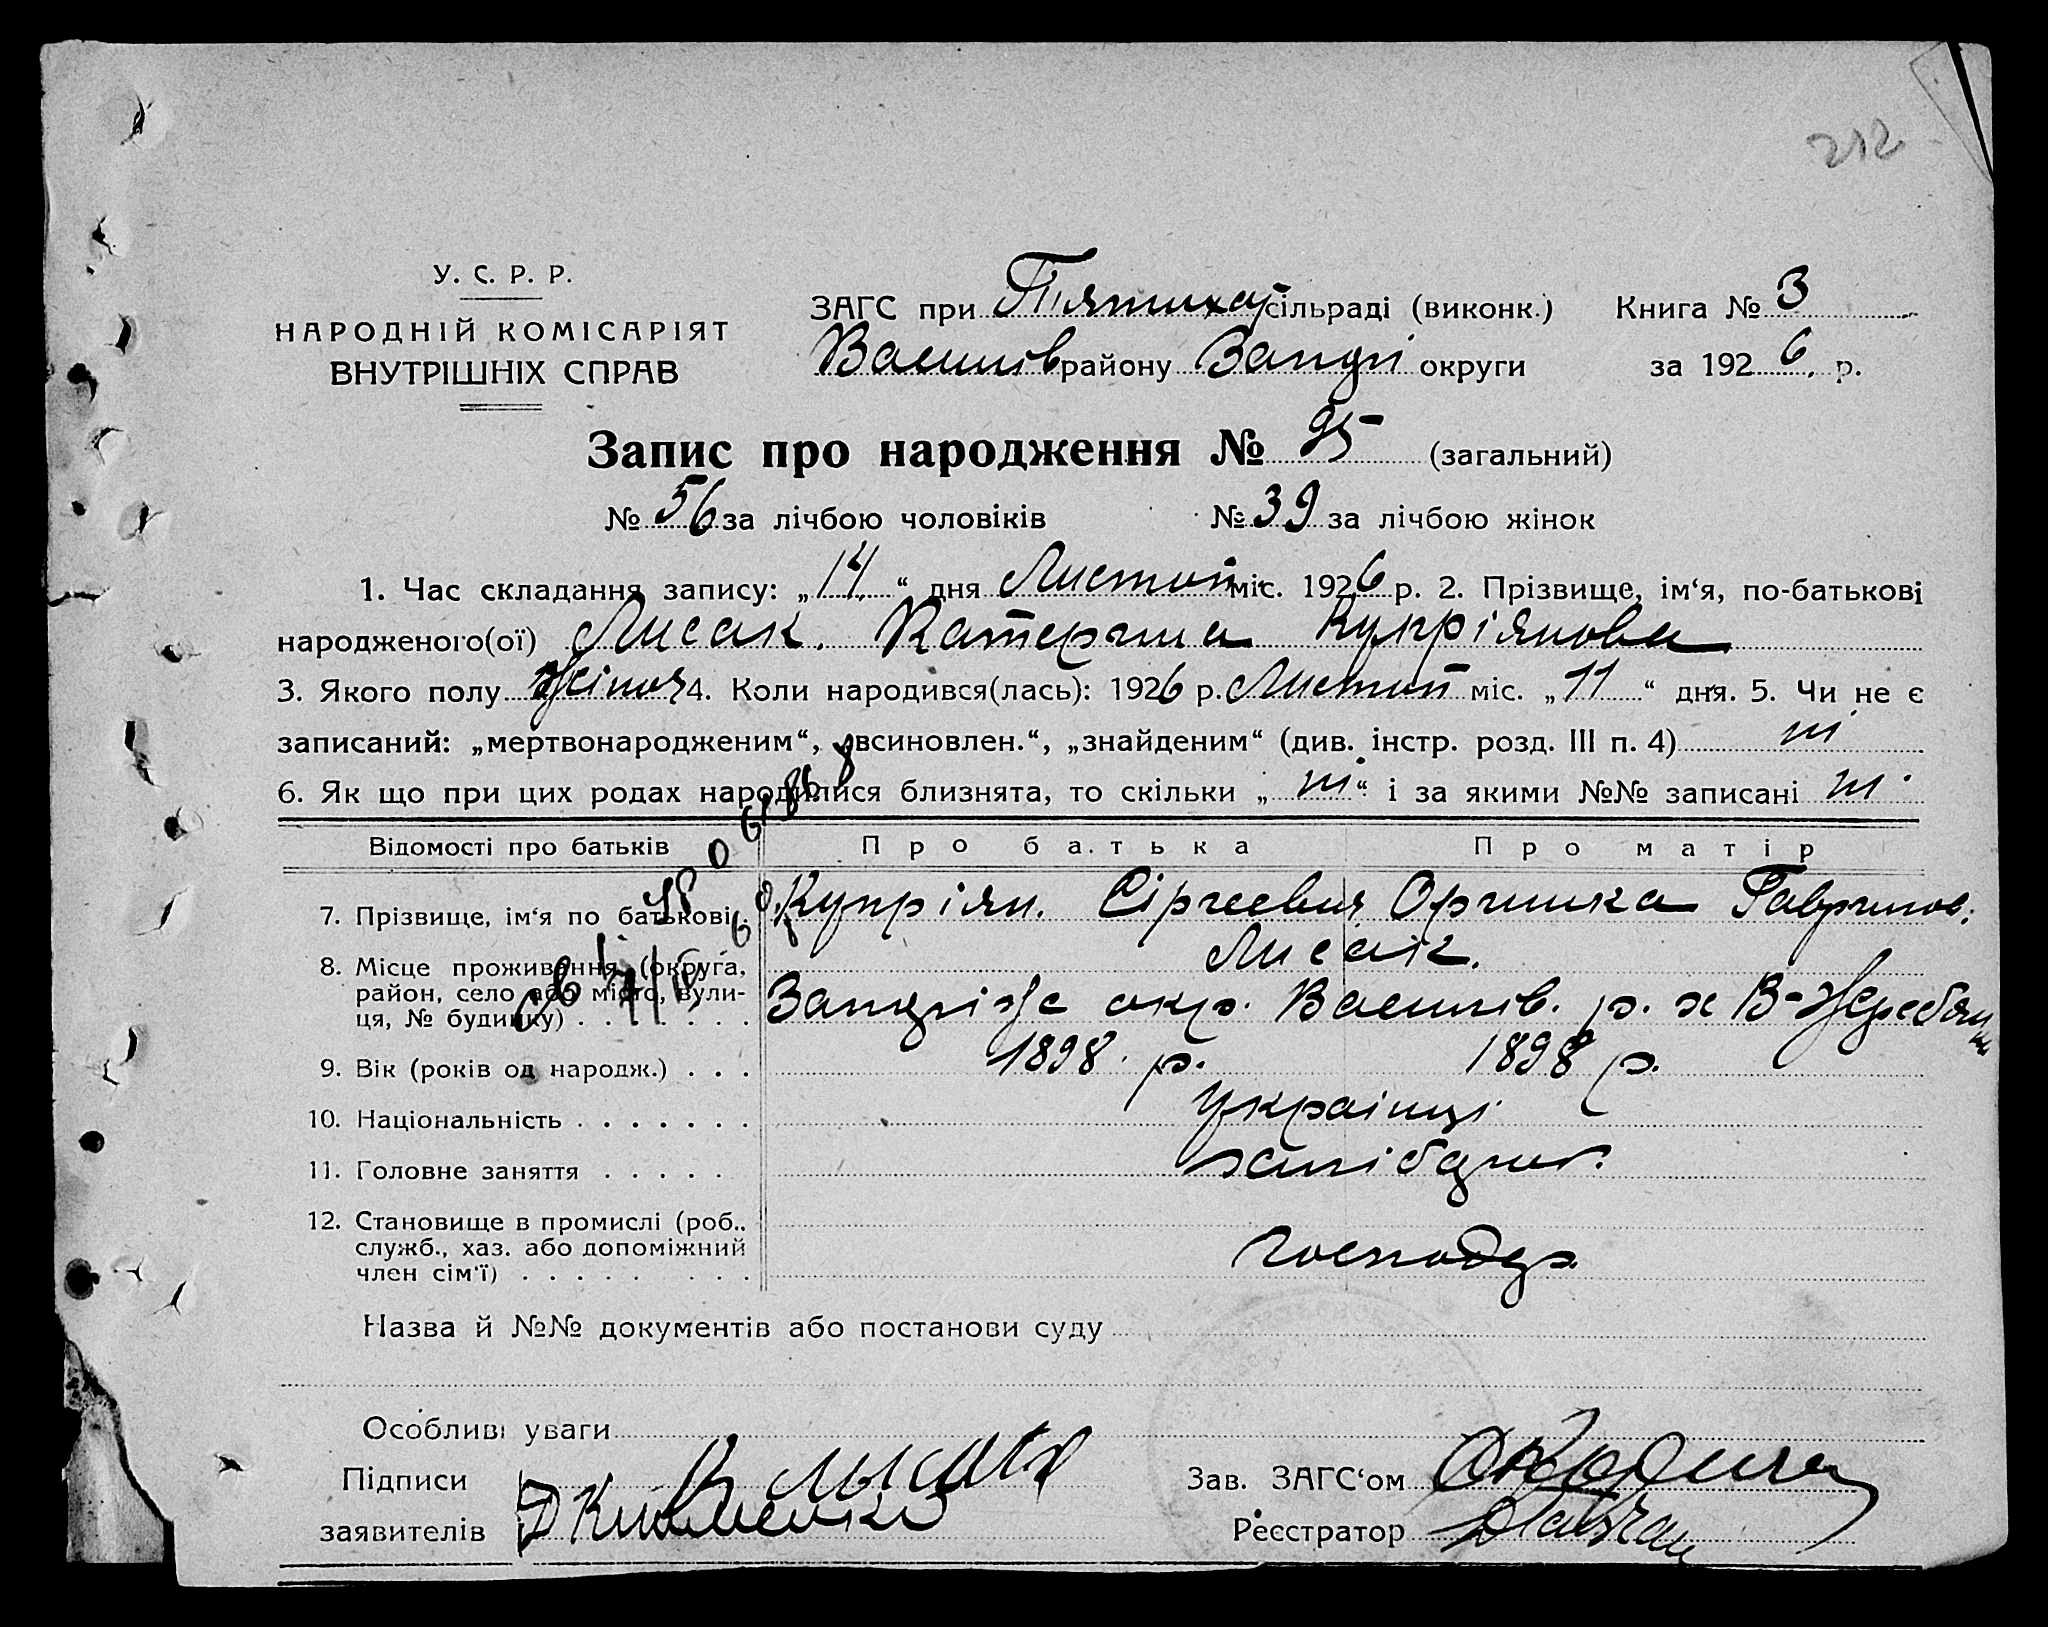 212
У. С. Р. Р.
НАРОДНІЙ КОМІСАРІЯТ
ВНУТРІШНІХ СПРАВ
ЗАГС при Пятихат сільраді (виконк.) Книга № 3
Васи́лів району Запоріж округи за 1926 р.
Запис про народження № 95 (загальний)
№ 56 за лічбою чоловіків № 39 за лічбою жінок
1. Час складання запису: „14“ дня Листоп міс. 1926 р. 2. Прізвище, ім‘я, по-батькові
народженого(ої) Лисак. Катерина Купріянова
3. Якого полу Жіноч 4. Коли народився(лась): 1926 р. Листоп міс. „11“ дня. 5. Чи не є
записаний: „мертвонародженим“, „всиновлен.“, „знайденим“ (див. інстр. розд. III п. 4) ні
6. Як що при цих родах народилися близнята, то скільки „ні“ і за якими №№ записані ні
Відомості про батьків Про батька Про матір
7. Прізвище, ім‘я по батькові. Купріян. Сіргеевич Оришка Гаврилов.
Лисак.
8. Місце проживання (округа,
район, село або місто, вули-
ця, № будинку) . . . . . . . Запоріж окр. Василів. р. х В-Жеребян
9. Вік (років од народж.) . . . 1898 р. 1898 р.
10. Національність . . . . . . . українці
11. Головне заняття . . . . . хлібороб.
12. Становище в промислі (роб..
служб., хаз. або допоміжний
член сім‘ї) . . . . . . . . господар.
Назва й №№ документів або постанови суду
Особливі уваги
Підписи Лысак Зав. ЗАГС‘ом
заявителів Реєстратор